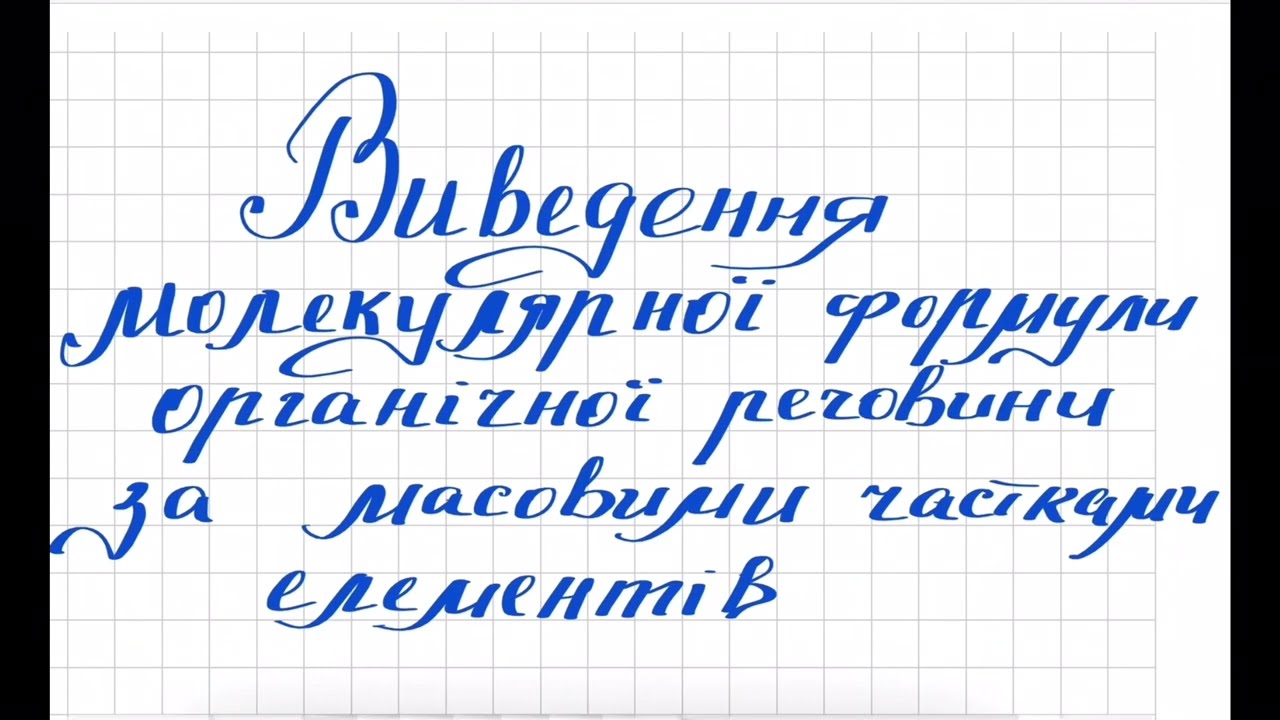 Виведення
молекулярної формули
органічної речовини
за масовими частками
елементів